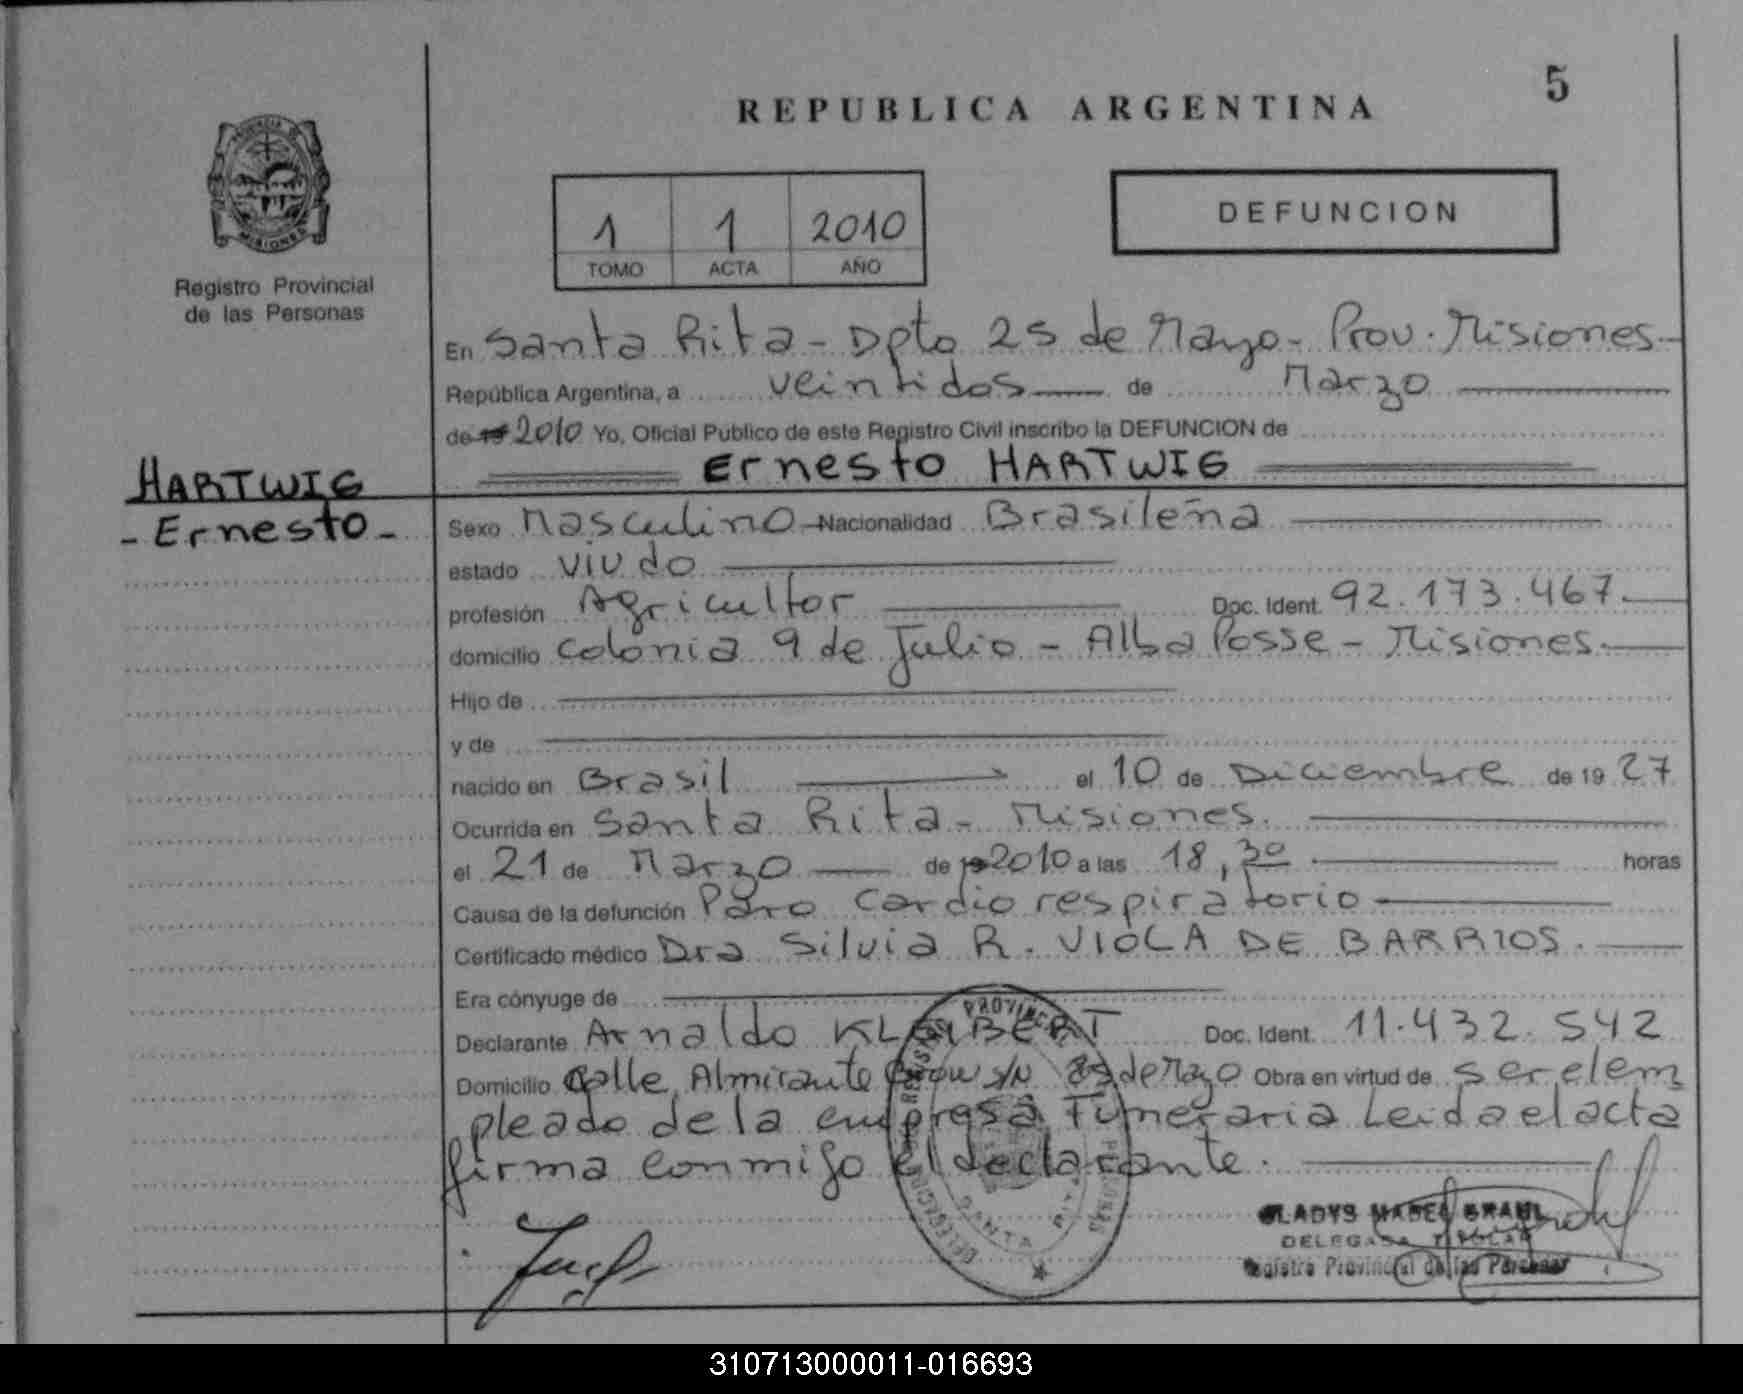 5
REPUBLICA ARGENTINA
PROVINCIA DE
MISIONES
Registro Provincial
de las Personas
1 1 2010
TOMO ACTA AÑO
DEFUNCION
En Santa Rita - Dpto 25 de Mayo - Prov. Misiones -
República Argentina, a veintidos de Marzo
de 19 2010 Yo, Oficial Público de este Registro Civil inscribo la DEFUNCION de
Ernesto HARTWIG
HARTWIG
- Ernesto -
Sexo Masculino Nacionalidad Brasileña
estado viudo
profesión Agricultor Doc. Ident. 92.173.467.
domicilio Colonia 9 de Julio - Alba Posse - Misiones.
Hijo de
y de
nacido en Brasil el 10 de Diciembre de 19 27
Ocurrida en Santa Rita - Misiones.
el 21 de Marzo de 19 2010 a las 18,30 horas
Causa de la defunción Paro Cardio respiratorio
Certificado médico Dra Silvia R. VIOLA DE BARRIOS.
Era cónyuge de
Declarante Arnaldo Doc. Ident. 11.432.542
Domicilio Calle Almirante Brow s/n 25 de Mayo Obra en virtud de ser el em
pleado de la empresa Funeraria Leida el acta
firma conmigo el declarante.
GLADYS MABEL
DELEGADA TITULAR
Registro Provincial de las Personas
310713000011-016693